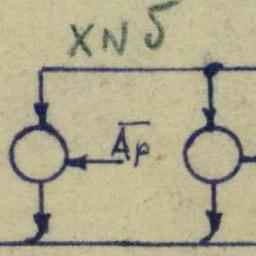 XN5
A̅p̅